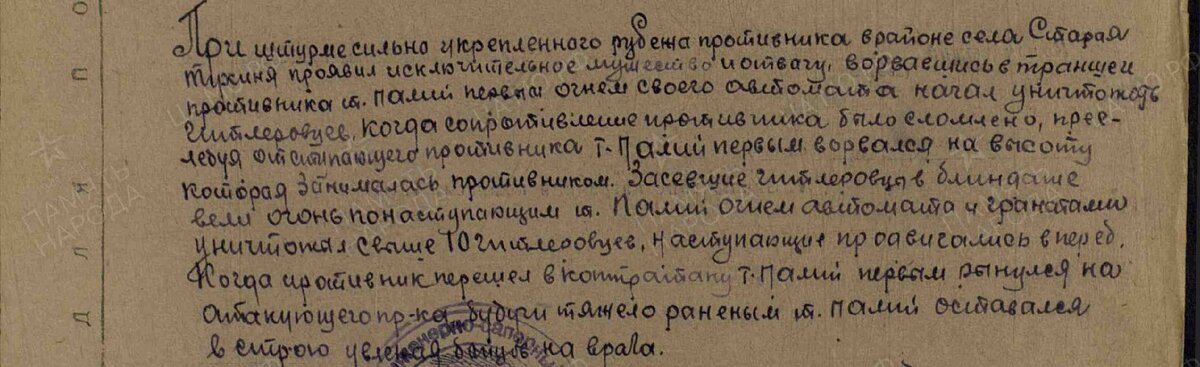 При штурме сильно укрепленного рубежа противника в районе села Старая
проявил исключительное мужество и отвагу, ворвавшись в траншеи
противника т. Палий первый огнем своего автомата начал уничтожать
гитлеровцев, когда сопротивление противника было сломлено, прес-
ледуя отступающего противника т. Палий первым ворвался на высоту
которая занималась противником. Засевшие гитлеровцы в блиндаше
вели огонь по наступающим т. Палий огнем автомата и гранатами
уничтожил свыше 10 гитлеровцев, наступающие продвигались вперед.
Когда противник перешел в контратаку т. Палий первым рынулся на
атакующего пр-ка будучи тяжело раненым т. Палий оставался
в строю увлекая бойцов на врага.
ПАМЯТЬ
НАРОДА